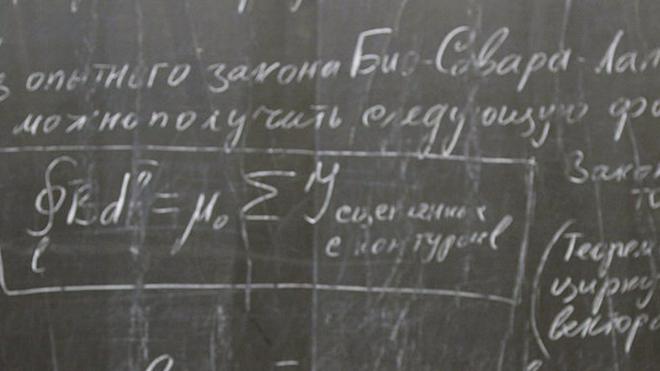 з опытного закона Био-Савара-Лап
можно получить следующую фо
∮B̄dl̄ = μ₀ ∑ J сцепленных
l с контуром l
Закон
то
(Теорем
цирку
вектора